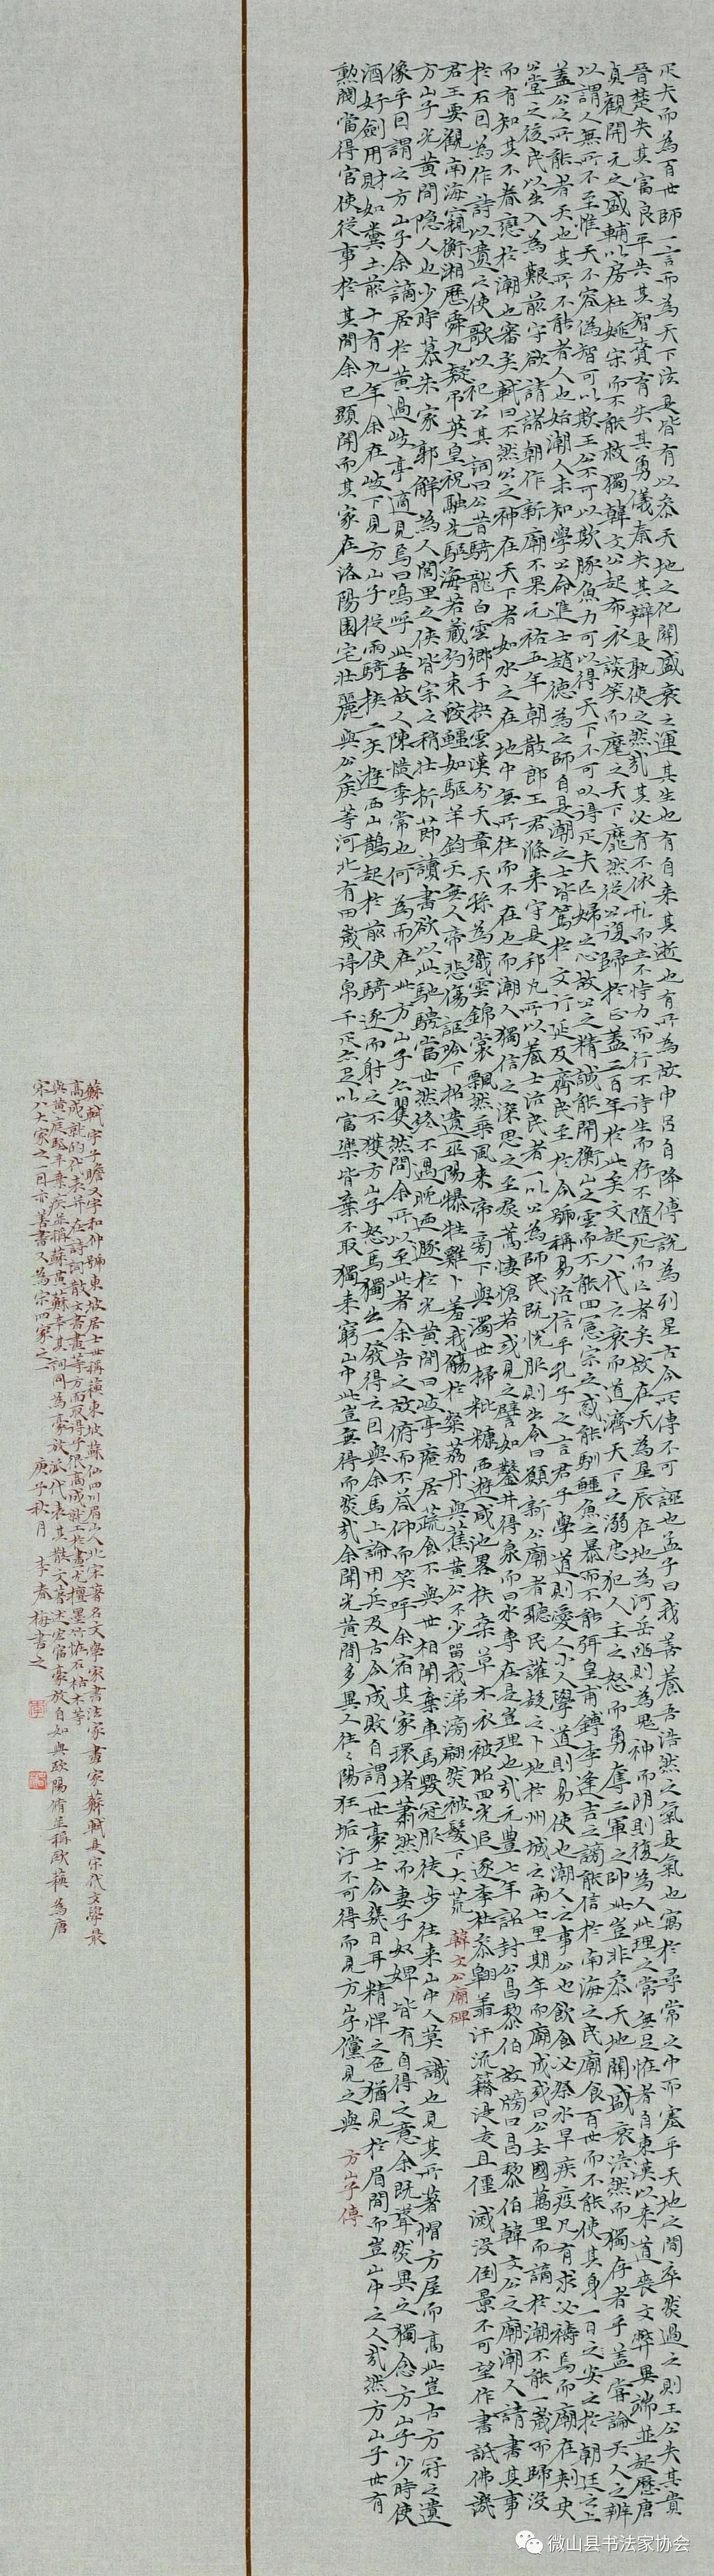 匹夫而為百世師一言而為天下法是皆有以参天地之化關盛衰之運其生也有自来其逝也有所為故申呂自降傅說為列星古今所傳不可誣也孟子曰我善養吾浩然之氣是氣也寓於尋常之中而塞乎天地之間卒然遇之則王公失其貴
晉楚失其富良平失其智賁育失其勇儀秦失其辯是孰使之然哉其必有不依形而立不恃力而行不待生而存不隨死而亡者矣故在天為星辰在地為河岳幽則為鬼神而明則復為人此理之常無足怪者自東漢以来道喪文弊異端並起歷唐
貞觀開元之盛輔以房杜姚宋而不能救獨韓文公起布衣談笑而麾之天下靡然從公復歸於正蓋三百年於此矣文起八代之衰而道濟天下之溺忠犯人主之怒而勇奪三軍之帥此豈非参天地關盛衰浩然而獨存者乎蓋嘗論天人之辨
以謂人無所不至惟天不容偽智可以欺王公不可以欺豚魚力可以得天下不可以得匹夫匹婦之心故公之精誠能開衡山之雲而不能回憲宗之惑能馴鱷魚之暴而不能弭皇甫鎛李逢吉之謗能信於南海之民廟食百世而不能使其身一日之安之於朝廷之上
蓋公之所能者天也其所不能者人也始潮人未知學公命進士趙德為之師自是潮之士皆篤於文行延及齊民至於今號稱易治信乎孔子之言君子學道則愛人小人學道則易使也潮人之事公也飲食必祭水旱疾疫凡有求必禱焉而廟在刺史
公堂之後民以出入為艱前守欲請諸朝作新廟不果元祐五年朝散郎王君滌来守是邦凡所以養士治民者一以公為師民既悅服則出令曰願新公廟者聽民讙趨之卜地於州城之南七里期年而廟成或曰公去國萬里而謫於潮不能一歲而歸沒
而有知其不眷戀於潮也審矣軾曰不然公之神在天下者如水之在地中無所往而不在也而潮人獨信之深思之至焄蒿悽愴若或見之譬如鑿井得泉而曰水專在是豈理也哉元豊七年詔封公昌黎伯故牓曰昌黎伯韓文公之廟潮人請書其事
於石因為作詩以遺之使歌以祀公其詞曰公昔騎龍白雲鄉手抉雲漢分天章天孫為織雲錦裳飄然乘風来帝旁下與濁世掃粃糠西遊咸池畧扶桑草木衣被昭回光追逐李杜参翱翔汗流籍湜走且僵滅沒倒景不可望作書詆佛譏
君王要觀南海窺衡湘歷舜九疑吊英皇祝融先驅海若藏約束蛟鱷如驅羊鈞天無人帝悲傷謳吟下招遣巫陽犦牲雞卜羞我觴於粲荔丹與蕉黄公不少留我涕滂翩然被髮下大荒 韓文公廟碑
方山子光黄間隱人也少時慕朱家郭解為人閭里之俠皆宗之稍壯折節讀書欲以此馳騁當世然終不遇晚迺遯於光黄間曰岐亭庵居蔬食不與世相聞棄車馬毀冠服徒步往来山中人莫識也見其所著帽方屋而高此豈古方冠之遺
像乎因謂之方山子余謫居於黄過岐亭適見焉曰嗚呼此吾故人陳慥季常也何為而在此方山子亦矍然問余所以至此者余告之故俯而不荅仰而笑呼余宿其家環堵蕭然而妻子奴婢皆有自得之意余既聳然異之獨念方山子少時使
酒好劍用財如糞土前十有九年余在岐下見方山子從兩騎挾二矢遊西山鵲起於前使騎逐而射之不獲方山子怒馬獨出一發得之因與余馬上論用兵及古今成敗自謂一世豪士今幾日耳精悍之色猶見於眉間而豈山中之人哉然方山子世有
勲閥當得官使從事於其間余已顯聞而其家在洛陽園宅壯麗與公侯等河北有田歲得帛千匹亦足以富樂皆棄不取獨来窮山中此豈無得而然哉余聞光黄間多異人往〻陽狂垢汙不可得而見方山子儻見之與 方山子傳
蘇軾字子瞻又字和仲號東坡居士世稱蘇東坡蘇仙四川眉山人北宋著名文學家書法家畫家蘇軾是宋代文學最
高成就的代表并在詩詞散文書畫等方面取得了很高成就工於畫尤擅墨竹怪石枯木等
與黄庭堅并稱蘇黄與辛棄疾同為豪放派代表其散文著述宏富豪放自如與歐陽脩並稱歐蘇為唐
宋八大家之一且亦善書又為宋四家之一 庚子秋月 李春梅書之
微山县书法家协会